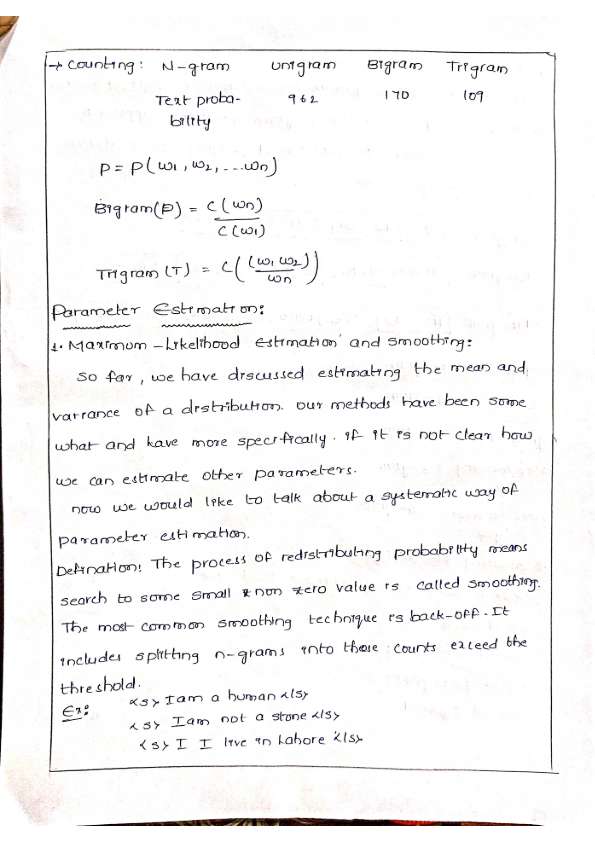 → Counting: N-gram Unigram Bigram Trigram
Text proba- 962 170 109
bility
P = P(w1, w2, ...wn)
Bigram(P) = C(wn)
C(w1)
Trigram (T) = C((w1 w2)/wn))
Parameter Estimation:
1. Maximum -Likelihood Estimation and smoothing:
So far, we have discussed estimating the mean and
variance of a distribution. our methods have been some
what and have more specifically. if it is not clear how
we can estimate other parameters.
now we would like to talk about a systematic way of
parameter estimation.
Defination: The process of redistributing probability means
search to some small non zero value is called smoothing.
The most common smoothing technique is back-off. It
includes splitting n-grams into those counts exceed the
threshold.
Ex: <s> I am a human <ls>
<s> I am not a stone <ls>
<s> I I live in Lahore <ls>